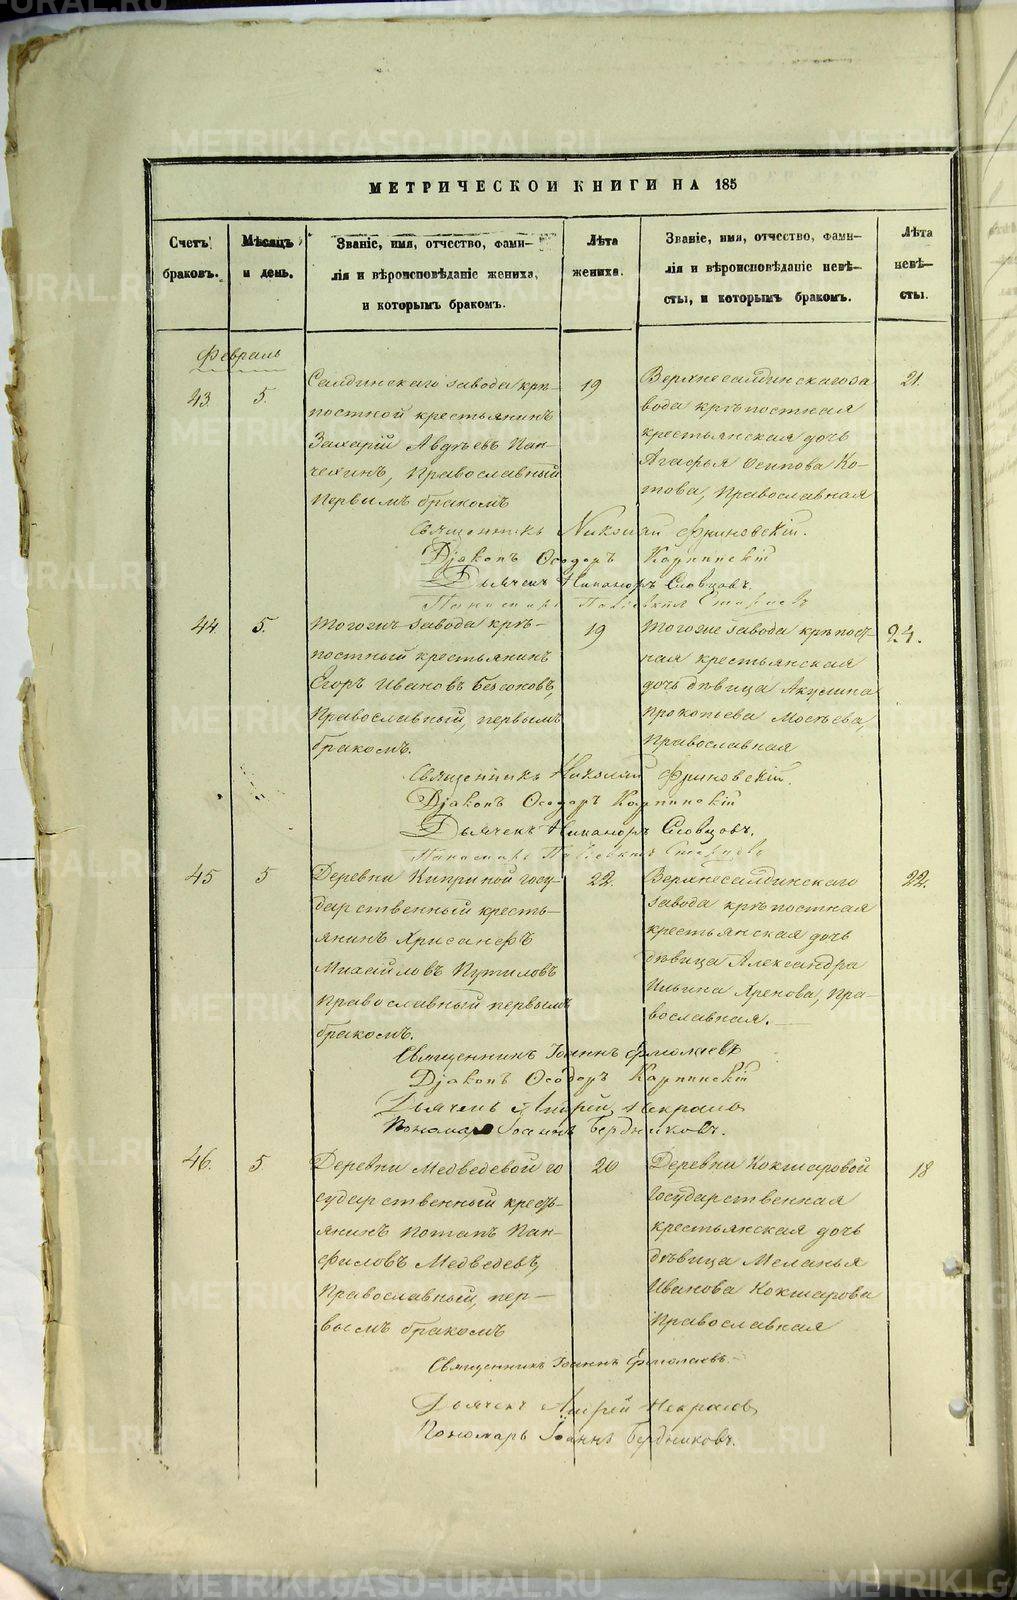 МЕТРИЧЕСКОЙ КНИГИ НА 185
Счетъ
браковъ.
Мѣсяцъ
и день.
Званіе, имя, отчество, фами-
лія и вѣроисповѣданіе жениха,
и которымъ бракомъ.
Лѣта
жениха.
Званіе, имя, отчество, фами-
лія и вѣроисповѣданіе невѣ-
сты, и которымъ бракомъ.
Лѣта
невѣ-
сты.
Февраль
43.
5.
Салдинскаго завода крѣ-
постной крестьянинъ
Захарій Авдѣевъ Пан-
чехинъ, Православный
Первымъ бракомъ
19
Верхнесалдинскаго за
вода крѣпостная
крестьянская дочь
Агафья Осипова Ко-
това, Православная
21.
Священникъ Николай Фриновскій.
Діаконъ Ѳеодоръ Карпинскій
Дьячекъ Никаноръ Словцовъ.
44.
5.
Тогоже завода крѣ-
постный крестьянинъ
Егоръ Ивановъ Безсоновъ,
Православный, первымъ
бракомъ.
19
Тогоже завода крѣпост-
ная крестьянская
дочь дѣвица Акулина
Прокопьева Мосѣева,
Православная
24.
Священникъ Николай Фриновскій.
Діаконъ Ѳеодоръ Карпинскій
Дьячекъ Никаноръ Словцовъ.
45
5
Деревни Киприной госу-
дарственный кресть-
янинъ Хрисанфъ
Михайловъ Путиловъ
Православный первымъ
бракомъ.
22.
Верхнесалдинскаго
завода крѣпостная
крестьянская дочь
дѣвица Александра
Ильина Хренова, Пра-
вославная.
22.
Священникъ Іоаннъ Ермолаевъ
Діаконъ Ѳеодоръ Карпинскій
Дьячекъ Андрей Некрасов
Пономарь Іоаннъ Бердниковъ.
46.
5
Деревни Медведевой го
сударственный кресть-
янинъ Потапъ Пан-
филовъ Медведевъ,
Православный, пер-
вымъ бракомъ
20
Деревни Кокшаровой
Государственная
крестьянская дочь
дѣвица Меланья
Иванова Кокшарова
Православная
18
Священникъ Іоаннъ Ермолаевъ
Дьячекъ Андрей Некрасов
Пономарь Іоаннъ Бердниковъ.
METRIKI.GASO-URAL.RU